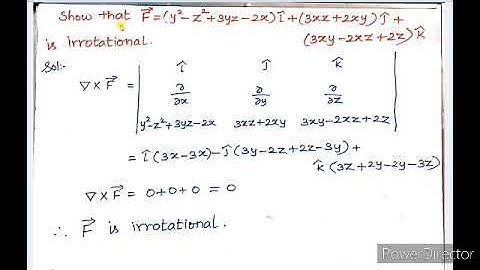 Show that F⃗ = (y²-z²+3yz-2x) î + (3xz+2xy) ĵ +
is irrotational. (3xy-2xz+2z) k̂
Sol:-
∇ × F⃗ = | î ĵ k̂ |
| ∂/∂x ∂/∂y ∂/∂z |
| y²-z²+3yz-2x 3xz+2xy 3xy-2xz+2z |
= î (3x-3x) - ĵ (3y-2z+2z-3y) +
k̂ (3z+2y-2y-3z)
∇ × F⃗ = 0+0+0 = 0
∴ F⃗ is irrotational.
PowerDirector